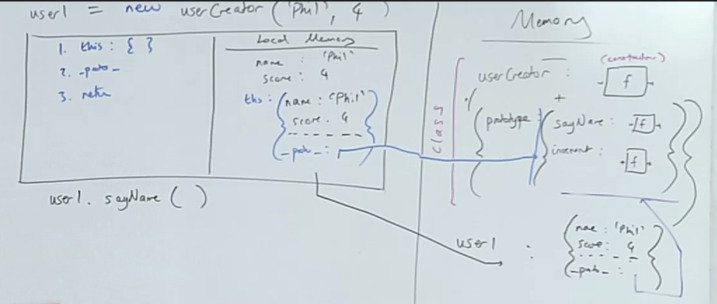 user1 = new userCreator ('Phil', 4)
1. this : { }
2. _proto_
3. return
Local Memory
name : 'Phil'
score : 4
this : { name : 'Phil'
score : 4
- - - - - -
_proto_ : }
user1. sayName ( )
Memory
(constructor)
userCreator : f
+
class
{ prototype : { sayName : f
increment : f } }
user1 : { name : 'Phil'
score : 4
- - - - - -
_proto_ : }